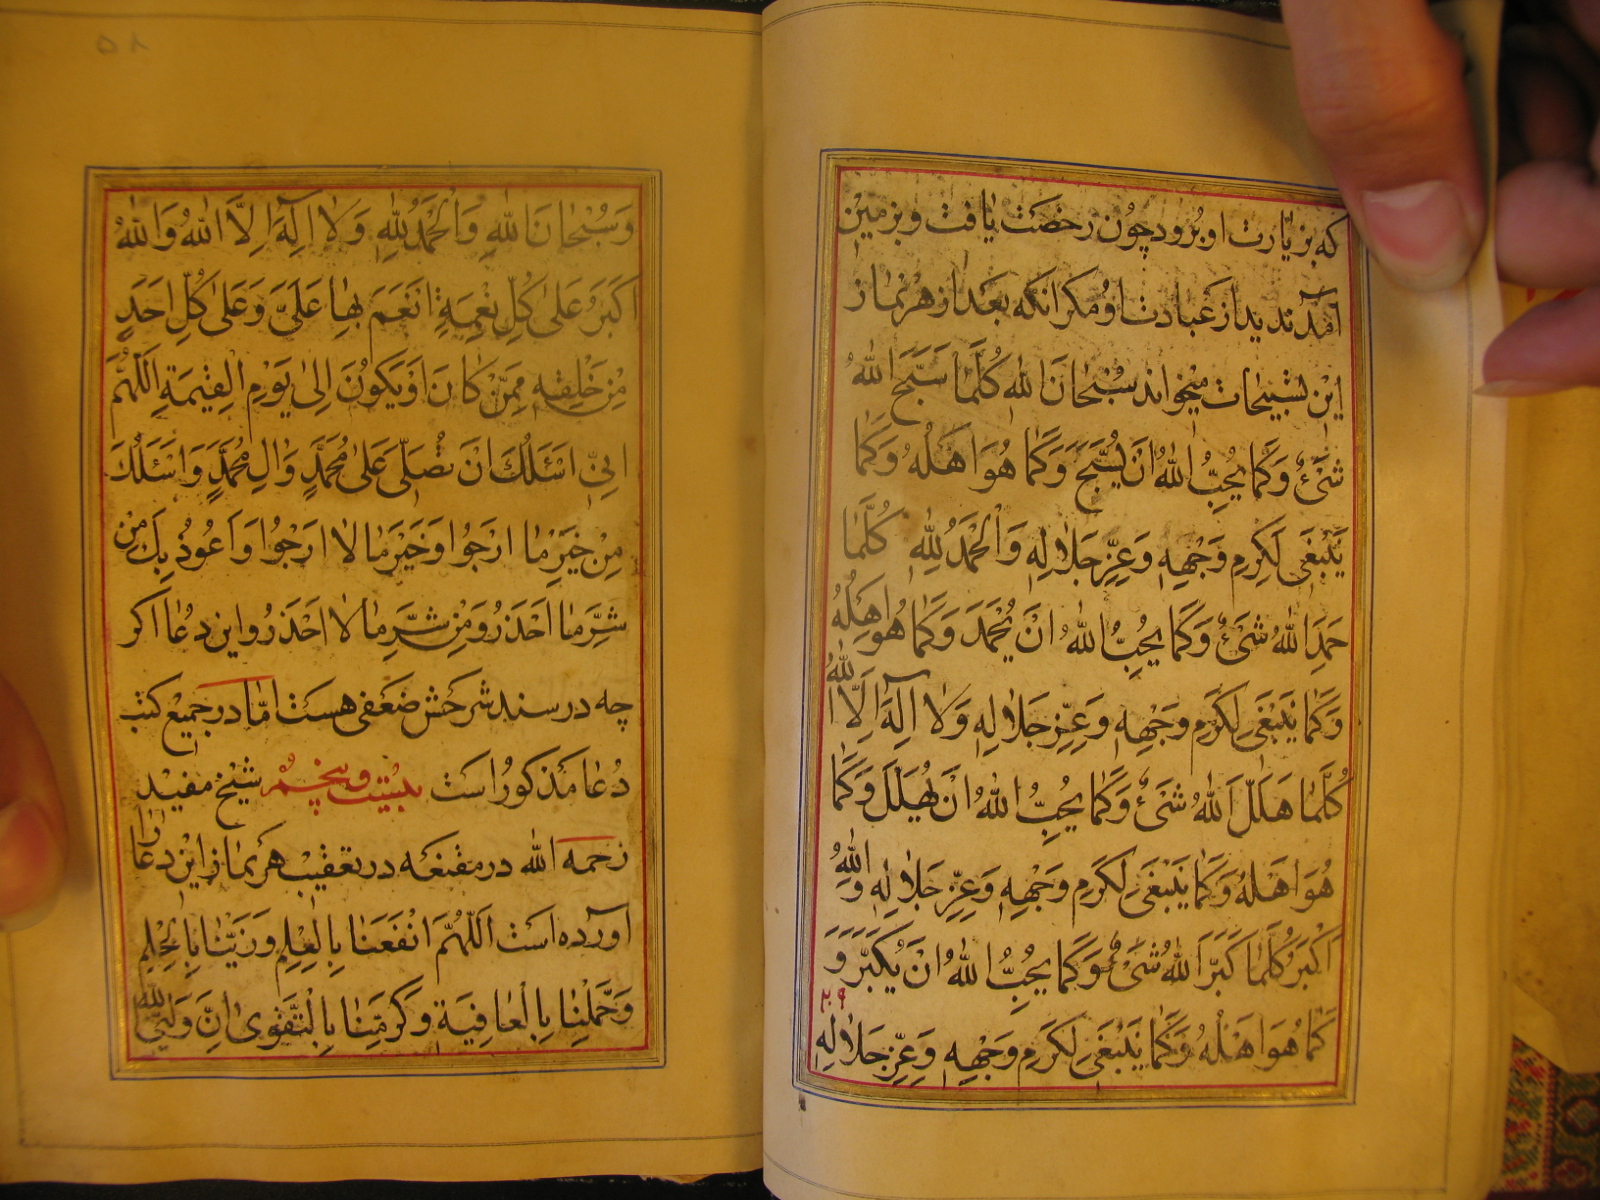 که بزیارت او برود چون رخصت یافت و بزمین
آمد ندید از عبادت او مکر انکه بعد از هر نماز
این تسبیحات میخواند سُبْحانَ اللهِ كُلَّمٰا سَبَّحَ اللهَ
شَیْءٌ وَكَمٰا يُحِبُّ اللهُ اَنْ يُسَبَّحَ وَكَمٰا هُوَ اَهْلُهُ وَكَمٰا
يَنْبَغى لِكَرَمِ وَجْهِهِ وَعِزِّ جَلاٰلِهِ وَالْحَمْدُ لِلّٰهِ كُلَّمٰا
حَمِدَ اللهَ شَیْءٌ وَكَمٰا يُحِبُّ اللهُ اَنْ يُحْمَدَ وَكَمٰا هُوَ اَهْلُهُ
وَكَمٰا يَنْبَغى لِكَرَمِ وَجْهِهِ وَعِزِّ جَلاٰلِهِ وَلاٰ اِلٰهَ اِلَّا اللهُ
كُلَّمٰا هَلَّلَ اللهَ شَیْءٌ وَكَمٰا يُحِبُّ اللهُ اَنْ يُهَلَّلَ وَكَمٰا
هُوَ اَهْلُهُ وَكَمٰا يَنْبَغى لِكَرَمِ وَجْهِهِ وَعِزِّ جَلاٰلِهِ وَاللهُ
اَكْبَرُ كُلَّمٰا كَبَّرَ اللهَ شَیْءٌ وَكَمٰا يُحِبُّ اللهُ اَنْ يُكَبَّرَ وَ
كَمٰا هُوَ اَهْلُهُ وَكَمٰا يَنْبَغى لِكَرَمِ وَجْهِهِ وَعِزِّ جَلاٰلِهِ
۵۸
وَسُبْحٰانَ اللهِ وَالْحَمْدُ لِلّٰهِ وَلاٰ اِلٰهَ اِلَّا اللهُ وَاللهُ
اَكْبَرُ عَلىٰ كُلِّ نِعْمَةٍ اَنْعَمَ بِهٰا عَلَىَّ وَعَلىٰ كُلِّ اَحَدٍ
مِنْ خَلْقِهِ مِمَّنْ كٰانَ اَوْ يَكُونُ اِلىٰ يَوْمِ الْقِيٰمَةِ اَللّٰهُمَّ
اِنّى اَسْئَلُكَ اَنْ تُصَلِّىَ عَلىٰ مُحَمَّدٍ وَاٰلِ مُحَمَّدٍ وَاَسْئَلُكَ
مِنْ خَيْرِ مٰا اَرْجُوا وَخَيْرِ مٰا لاٰ اَرْجُوا وَاَعُوذُ بِكَ مِنْ
شَرِّ مٰا اَحْذَرُ وَمِنْ شَرِّ مٰا لاٰ اَحْذَرُ و این دعا اکر
چه در سند شرحش ضعفی هست امّا در جمیع کتب
دعا مذکور است بیست و پنجم شیخ مفید
رحمه الله در مقنعه در تعقیب هر نماز این دعا را
آورده است اَللّٰهُمَّ انْفَعْنٰا بِالْعِلْمِ وَزَيِّنّٰا بِالْحِلْمِ
وَجَمِّلْنٰا بِالْعٰافِيَةِ وَكَرِّمْنٰا بِالتَّقْوىٰ اِنَّ وَلِيِّىَ اللهُ